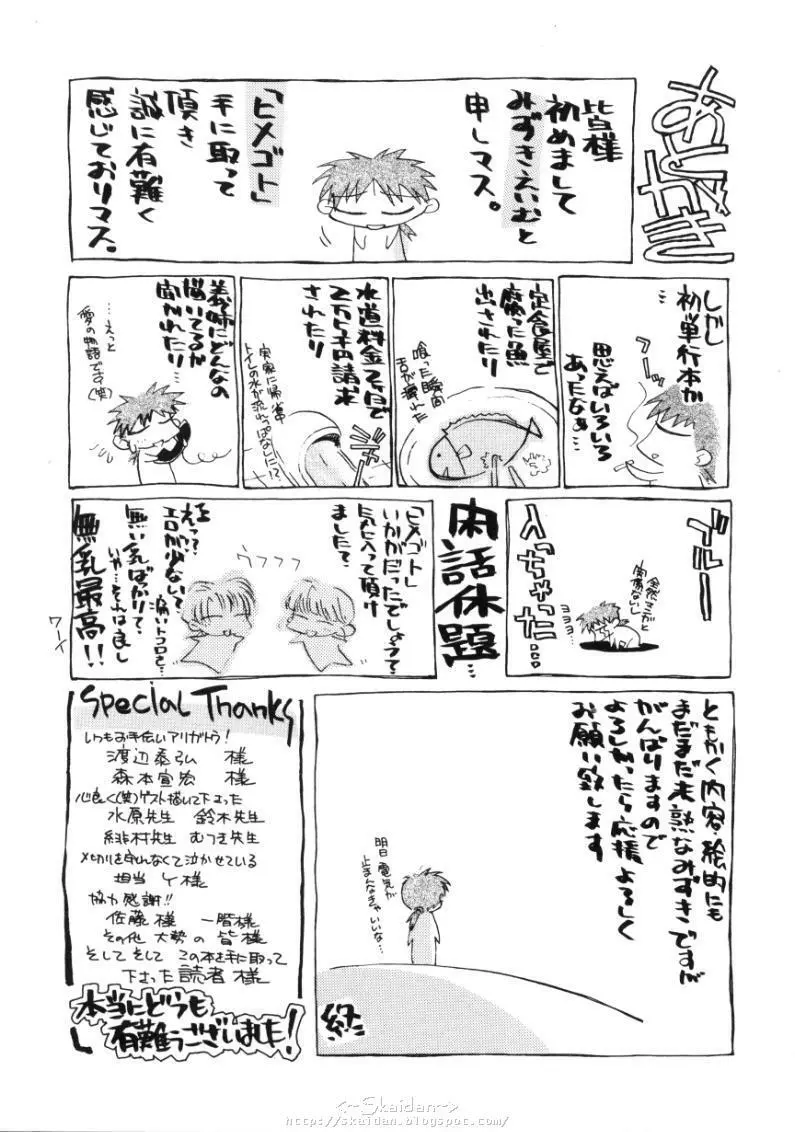 あとがき
皆様
初めまして
みずきえいむと
申しマス。
「ヒメゴト」
手に取って
頂き
誠に有難く
感じておりマス。
しかし
初単行本か
…
思えばいろいろ
あったなぁ…
フーッ
定食屋で
腐った魚
出されたり
喰った瞬間
舌が痺れた
水道料金2ヶ月で
2万5千円請求
されたり
実家に帰省中
トイレの水が流れっぱなしに!?
義姉にどんなの
描いてるか
聞かれたり…
…えっと
愛の物語です(笑)
ブルー
入っちゃった…
全然マンガと
関係ないし
ヨヨヨ…
閑話休題…
「ヒメゴト」
いかがだったでしょうて
気に入って頂け
ましたて
ウフフフ
えっ?
エロが少ないて
痛いトコロを…
無い乳ばかりて
いや…それは良し
無乳最高!!
ワーイ
ともかく内容・絵的にも
まだまだ未熟なみずきですが
がんばりますので
よろしかったら応援よろしく
お願い致します
明日電気が
止まんなきゃいいな…
終
Special Thanks
いつもお手伝いアリガトう!
渡辺泰弘 様
森本宣宏 様
心良く(笑)ゲスト描いて下さった
水原先生 鈴木先生
緋村先生 むつき先生
〆切りを守れなくて泣かせている
担当 Y様
協力感謝!!
佐藤様 一階様
その他 大勢の 皆様
そして そして この本を手に取って
下さった読者 様
本当にどうも
有難うございました!
<~Skaidan~>
http://skaidan.blogspot.com/